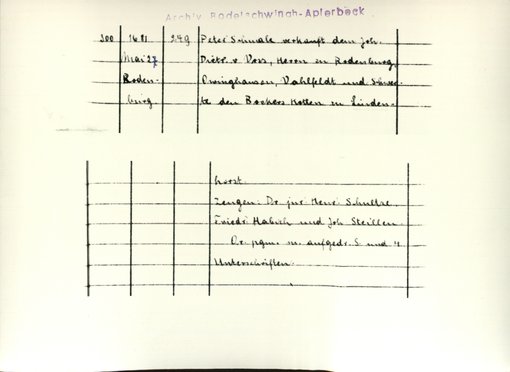 Archiv Bodelschwingh-Aplerbeck
300 1681 249 Peter Schmale verkauft dem Joh.
Mai 27 Dietr. v Voss, Herrn zu Rodenburg,
Roden- Vahlfeldt und
burg den Bockers Kotten in Linden-
horst.
Zeugen: Dr jur Henr Schultze,
Friedr Habich und Joh Steillen
Or. pgm. m. aufgedr. S und 4
Unterschriften.